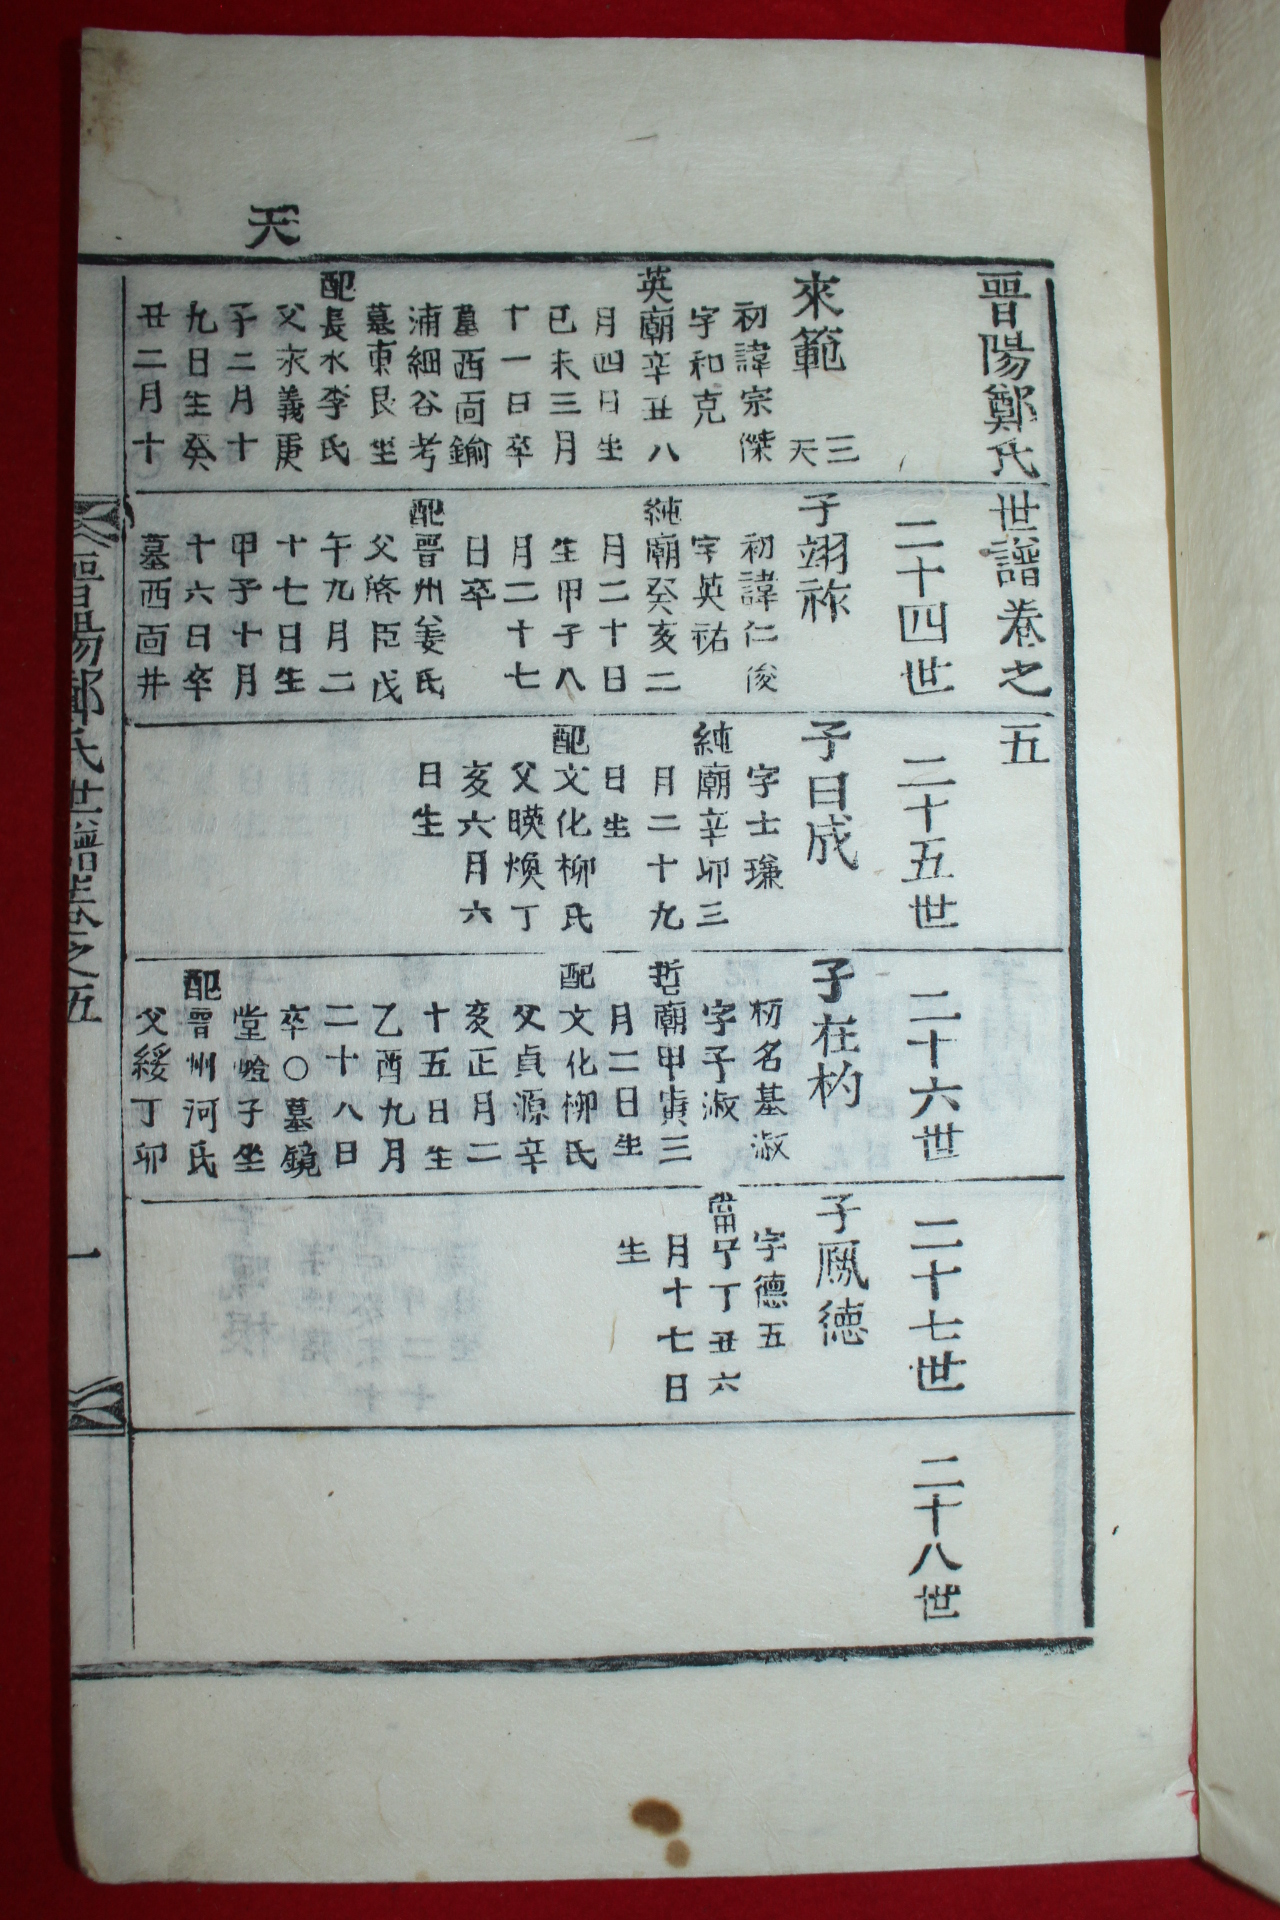 天
晋陽鄭氏世譜卷之五
二十四世
二十五世
二十六世
二十七世
二十八世
來範
三
天
初諱宗傑
字和克
英廟辛丑八
月四日生
已未三月
十一日卒
墓西面鍮
浦細谷考
墓東艮坐
配長水李氏
父永義庚
子二月十
九日生癸
丑二月十
子翊祚
初諱仁俊
字英祐
純廟癸亥二
月二十日
生甲子八
月二十七
日卒
配晋州姜氏
父啓臣戊
午九月二
十七日生
甲子十月
十六日卒
墓西面井
子日成
字士璡
純廟辛卯三
月二十九
日生
配文化柳氏
父暎煥丁
亥六月六
日生
子在杓
初名基淑
字子淑
哲廟甲寅三
月二日生
配文化柳氏
父貞源辛
亥正月二
十五日生
乙酉九月
二十八日
卒○墓鏡
堂嶝子坐
配晋州河氏
父綏丁卯
子鳳德
字德五
當宁丁丑六
月十七日
生
晋陽鄭氏世譜卷之五
一